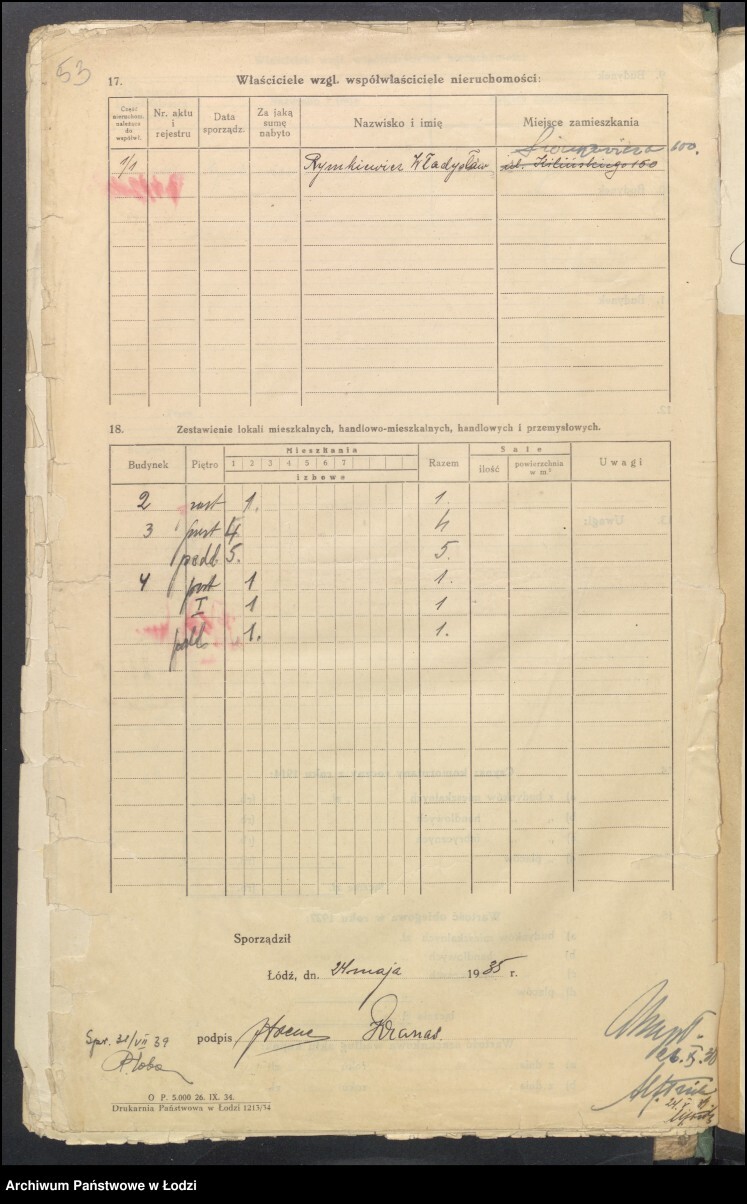 53
17. Właściciele wzgl. współwłaściciele nieruchomości:
Część nieruchom. należąca do współwł. Nr. aktu i rejestru Data sporządz. Za jaką sumę nabyto Nazwisko i imię Miejsce zamieszkania
Sienkiewicza 100.
1/1 Rymkiewicz Władysław ul. Kilińskiego 150
18. Zestawienie lokali mieszkalnych, handlowo-mieszkalnych, handlowych i przemysłowych.
Budynek Piętro Mieszkania Razem Sale Uwagi
1 2 3 4 5 6 7 ilość powierzchnia w m²
izbowe
2 1. 1.
3 4 4
podd 5. 5.
4 1 1.
I 1 1
1. 1.
Sporządził
Łódź, dn. 24 maja 1935 r.
Spr. 31/VII 39 podpis
O P. 5.000 26. IX. 34.
Drukarnia Państwowa w Łodzi 1213/34
Archiwum Państwowe w Łodzi